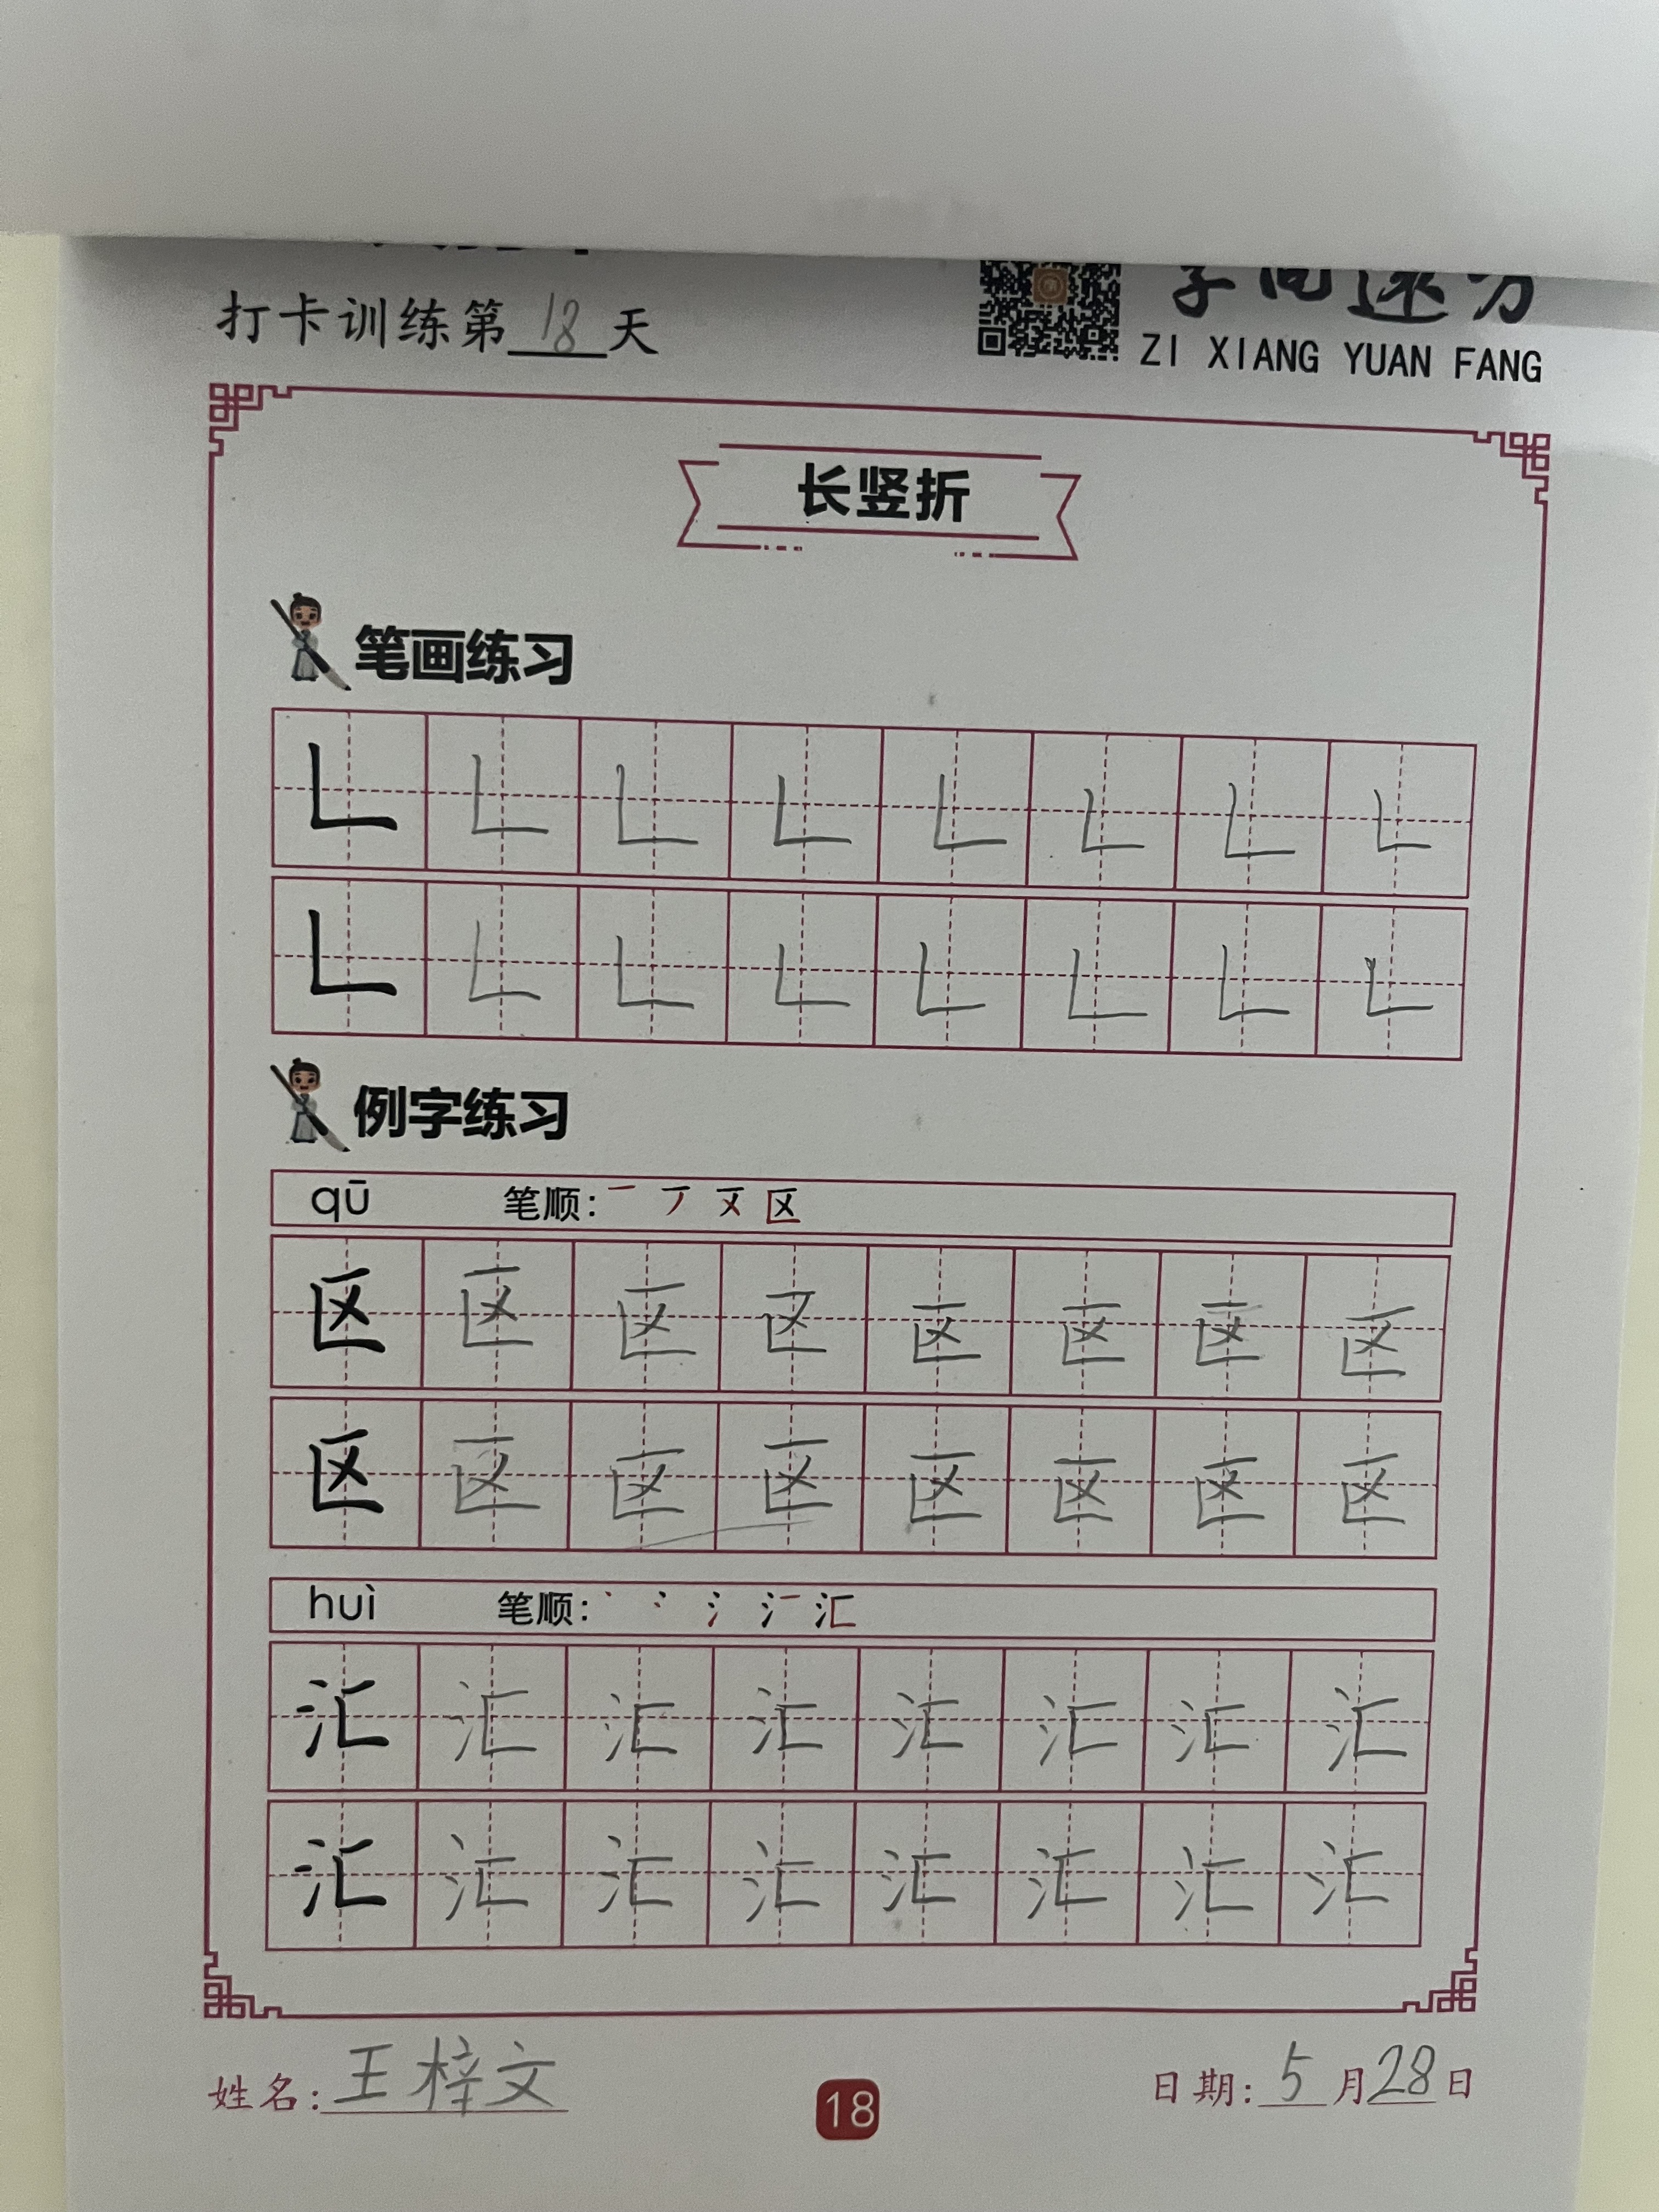 打卡训练第18天
ZI XIANG YUAN FANG
长竖折
笔画练习
𠃊 𠃊 𠃊 𠃊 𠃊 𠃊 𠃊 𠃊
𠃊 𠃊 𠃊 𠃊 𠃊 𠃊 𠃊 𠃊
例字练习
qū 笔顺: 区
区 区 区 区 区 区 区 区
区 区 区 区 区 区 区 区
huì 笔顺: 丶 冫 氵 汇
汇 汇 汇 汇 汇 汇 汇 汇
汇 汇 汇 汇 汇 汇 汇 汇
姓名:王梓文
18
日期:5月28日